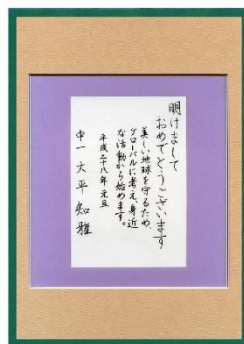 明けまして
おめでとうございます
美しい地球を守るため、
グローバルに考え、身近
な活動から始めます。
平成二十八年 元旦
中一 大平 知雅